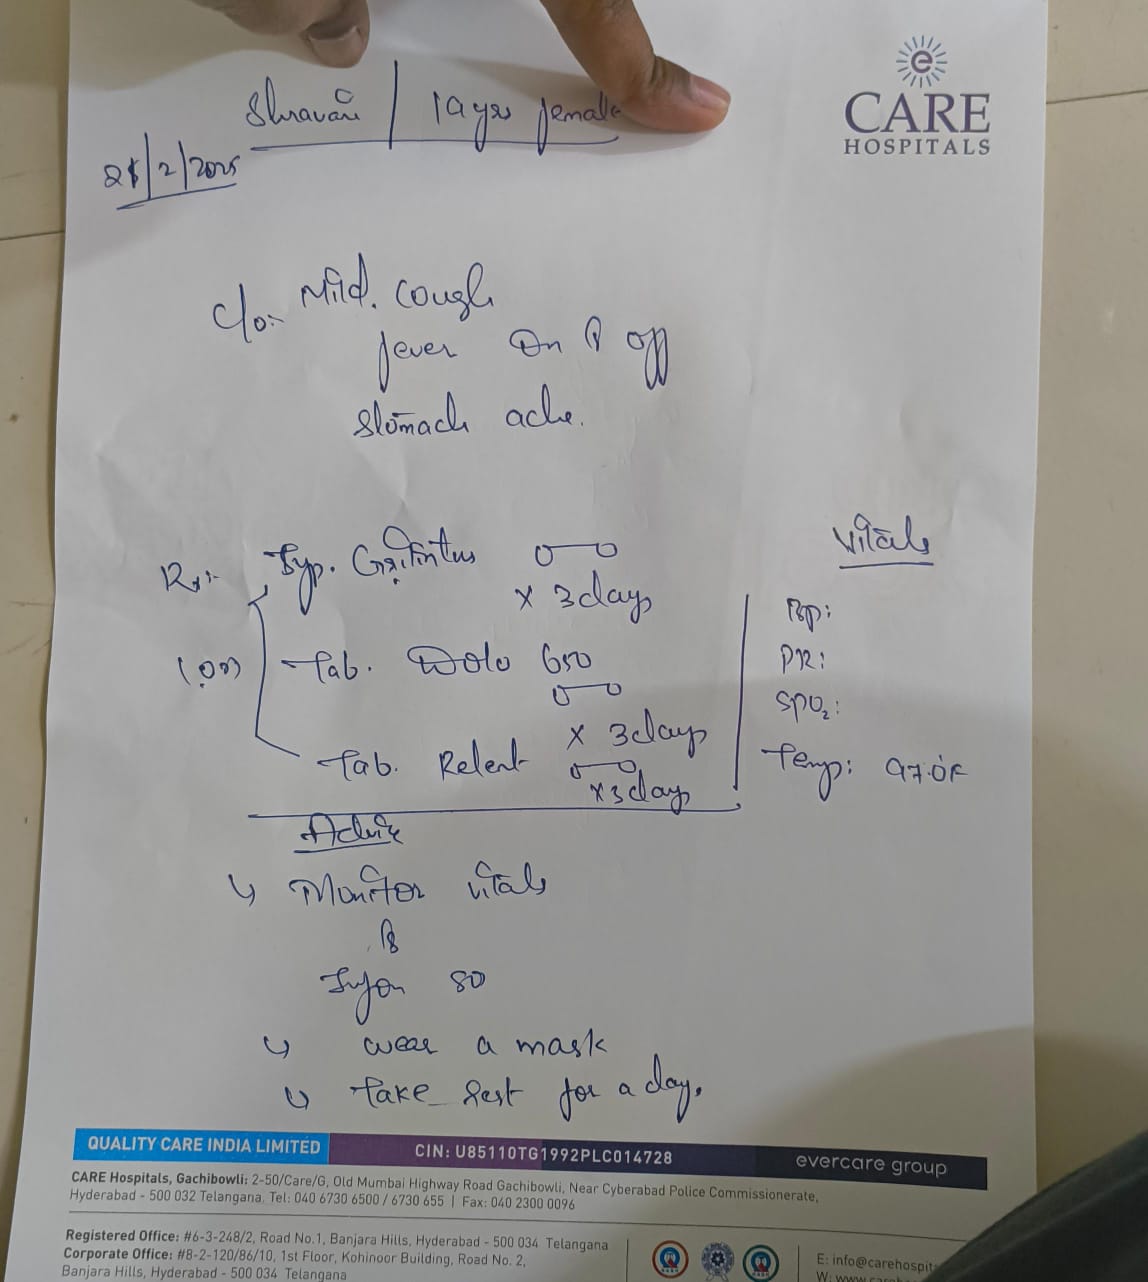 CARE
HOSPITALS
Shravani / 19 yrs female
28/2/2025
c/o:- Mild. cough
fever on & off
stomach ache.
Rx:- Syp. Grilintus
x 3 days
(or) Tab. Dolo 650
x 3 days
Tab. Relent
x 3 days
Vitals
BP:
PR:
SPO2:
Temp: 97.0F
Advice
Monitor vitals
&
Infon SO
wear a mask
take rest for a day.
QUALITY CARE INDIA LIMITED CIN: U85110TG1992PLC014728 evercare group
CARE Hospitals, Gachibowli: 2-50/Care/G, Old Mumbai Highway Road Gachibowli, Near Cyberabad Police Commissionerate,
Hyderabad - 500 032 Telangana. Tel: 040 6730 6500 / 6730 655 | Fax: 040 2300 0096
Registered Office: #6-3-248/2, Road No.1, Banjara Hills, Hyderabad - 500 034 Telangana
Corporate Office: #8-2-120/86/10, 1st Floor, Kohinoor Building, Road No. 2,
Banjara Hills, Hyderabad - 500 034 Telangana
E: info@carehospit
W: www.